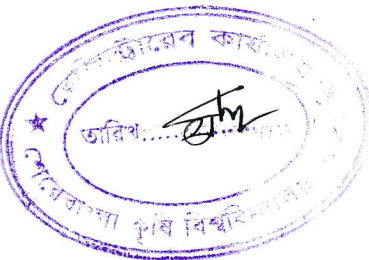 রেজিস্ট্রারের কার্যালয়
তারিখ
শেরেবাংলা কৃষি বিশ্ববিদ্যালয়